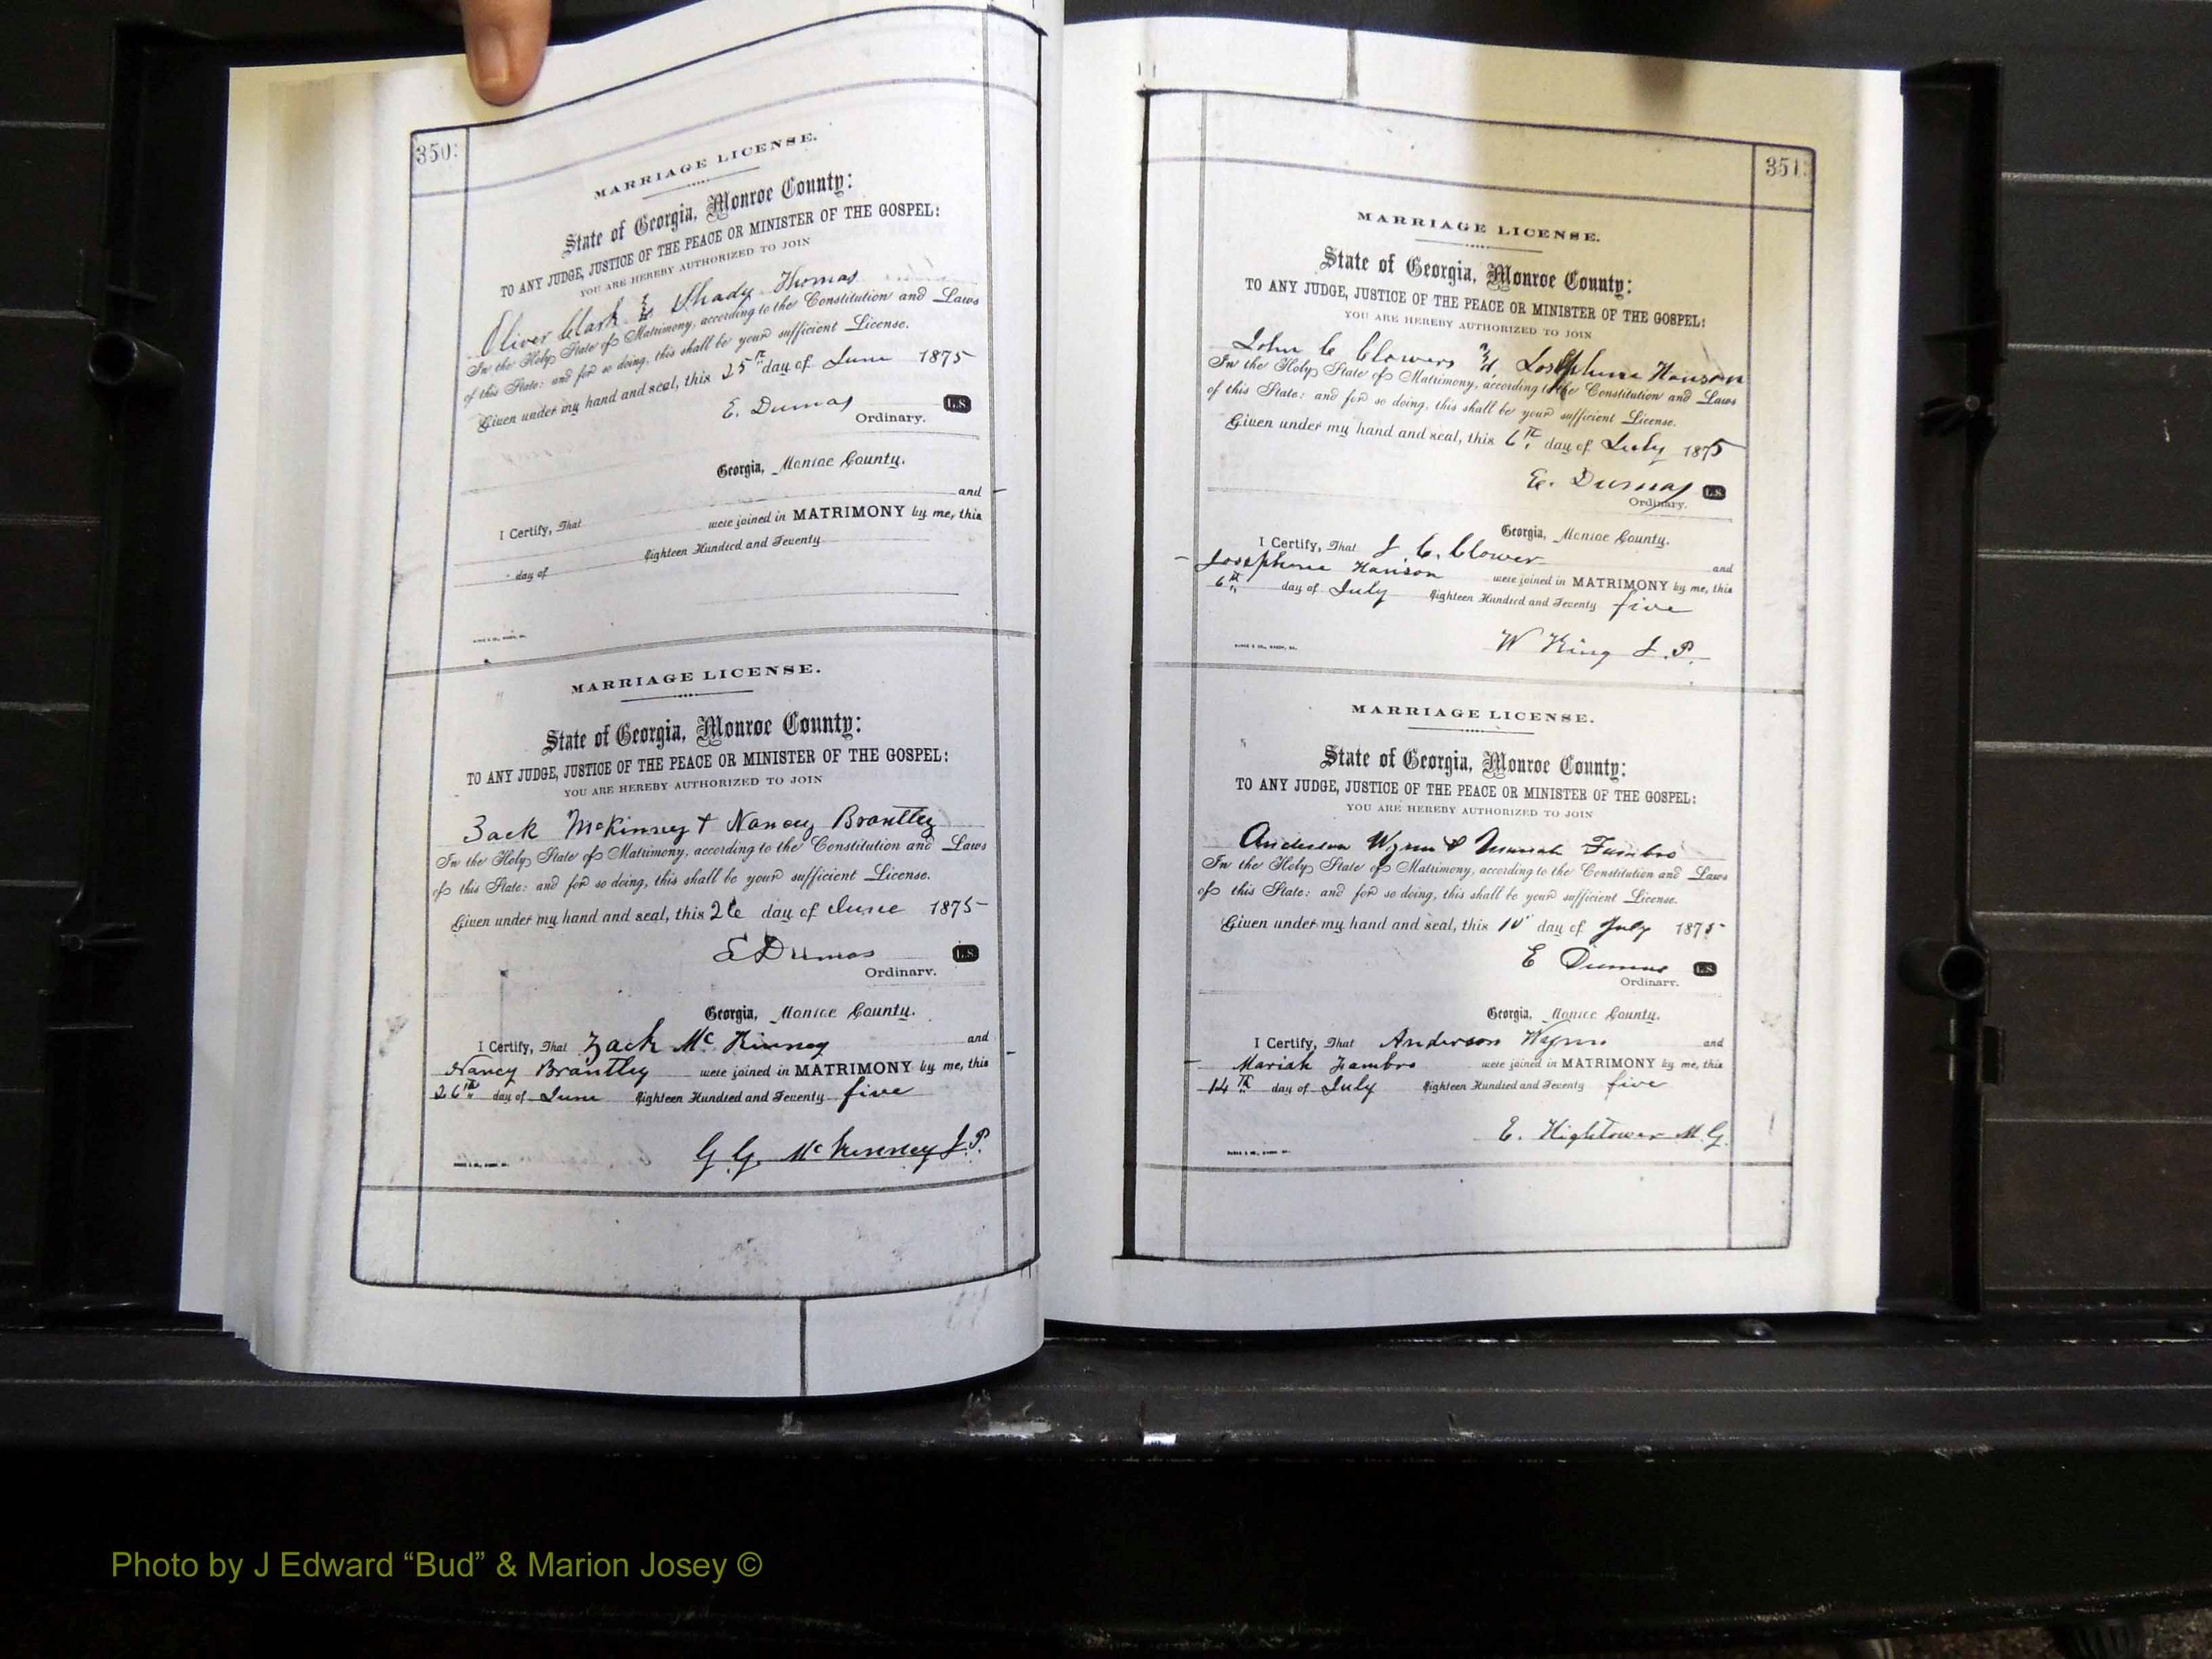 350:
MARRIAGE LICENSE.
State of Georgia, Monroe County:
TO ANY JUDGE, JUSTICE OF THE PEACE OR MINISTER OF THE GOSPEL:
YOU ARE HEREBY AUTHORIZED TO JOIN
Oliver Clark & Shady Thomas
In the Holy State of Matrimony, according to the Constitution and Laws
of this State: and for so doing, this shall be your sufficient License.
Given under my hand and seal, this 25th day of June 1875
E. Dumas L.S.
Ordinary.
Georgia, Monroe County.
and
I Certify, That were joined in MATRIMONY by me, this
day of Eighteen Hundred and Seventy
MARRIAGE LICENSE.
State of Georgia, Monroe County:
TO ANY JUDGE, JUSTICE OF THE PEACE OR MINISTER OF THE GOSPEL:
YOU ARE HEREBY AUTHORIZED TO JOIN
Zack McKinney + Nancy Brantley
In the Holy State of Matrimony, according to the Constitution and Laws
of this State: and for so doing, this shall be your sufficient License.
Given under my hand and seal, this 26 day of June 1875
E Dumas L.S.
Ordinary.
Georgia, Monroe County.
I Certify, That Zack Mc Kinney and
Nancy Brantley were joined in MATRIMONY by me, this
26th day of June Eighteen Hundred and Seventy five
G G McKinney J.P.
351:
MARRIAGE LICENSE.
State of Georgia, Monroe County:
TO ANY JUDGE, JUSTICE OF THE PEACE OR MINISTER OF THE GOSPEL:
YOU ARE HEREBY AUTHORIZED TO JOIN
John C Clowers & Josephine Hanson
In the Holy State of Matrimony, according to the Constitution and Laws
of this State: and for so doing, this shall be your sufficient License.
Given under my hand and seal, this 6th day of July 1875
E. Dumas L.S.
Ordinary.
Georgia, Monroe County.
I Certify, That J. C. Clower and
Josephine Hanson were joined in MATRIMONY by me, this
6th day of July Eighteen Hundred and Seventy five
W King J.P.
MARRIAGE LICENSE.
State of Georgia, Monroe County:
TO ANY JUDGE, JUSTICE OF THE PEACE OR MINISTER OF THE GOSPEL:
YOU ARE HEREBY AUTHORIZED TO JOIN
Anderson Wynn & Mariah Fambro
In the Holy State of Matrimony, according to the Constitution and Laws
of this State: and for so doing, this shall be your sufficient License.
Given under my hand and seal, this 10 day of July 1875
E Dumas L.S.
Ordinary.
Georgia, Monroe County.
I Certify, That Anderson Wynn and
Mariah Fambro were joined in MATRIMONY by me, this
14th day of July Eighteen Hundred and Seventy five
E. Hightower M.G.
Photo by J Edward “Bud” & Marion Josey ©